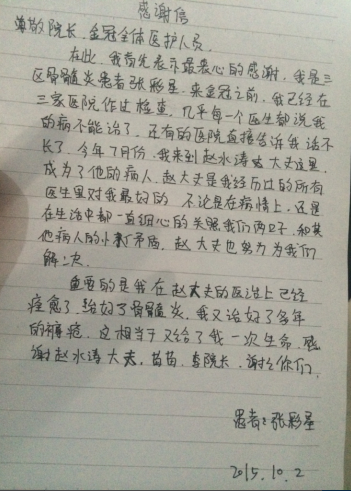 感谢信
尊敬院长、金冠全体医护人员
在此，我首先表示最衷心的感谢，我是三
区骨髓炎患者张彩星，来金冠之前，我已经在
三家医院作过检查，几乎每一个医生都说我
的病不能治了，还有的医院直接告诉我活不
长了，今年7月份，我来到赵水涛大夫这里，
成为了他的病人，赵大夫是我经历过的所有
医生里对我最好的，不论是在病情上，还是
在生活中都一直细心的关照我们，和其
他病人的小矛盾，赵大夫也努力为我们
解决。
重要的是我在赵大夫的医治上已经
痊愈了，治好了骨髓炎，我又治好了多年
的褥疮，这相当于又给了我一次生命，感
谢赵水涛大夫，苗苗，李院长，谢谢你们。
患者：张彩星
2015.10.2